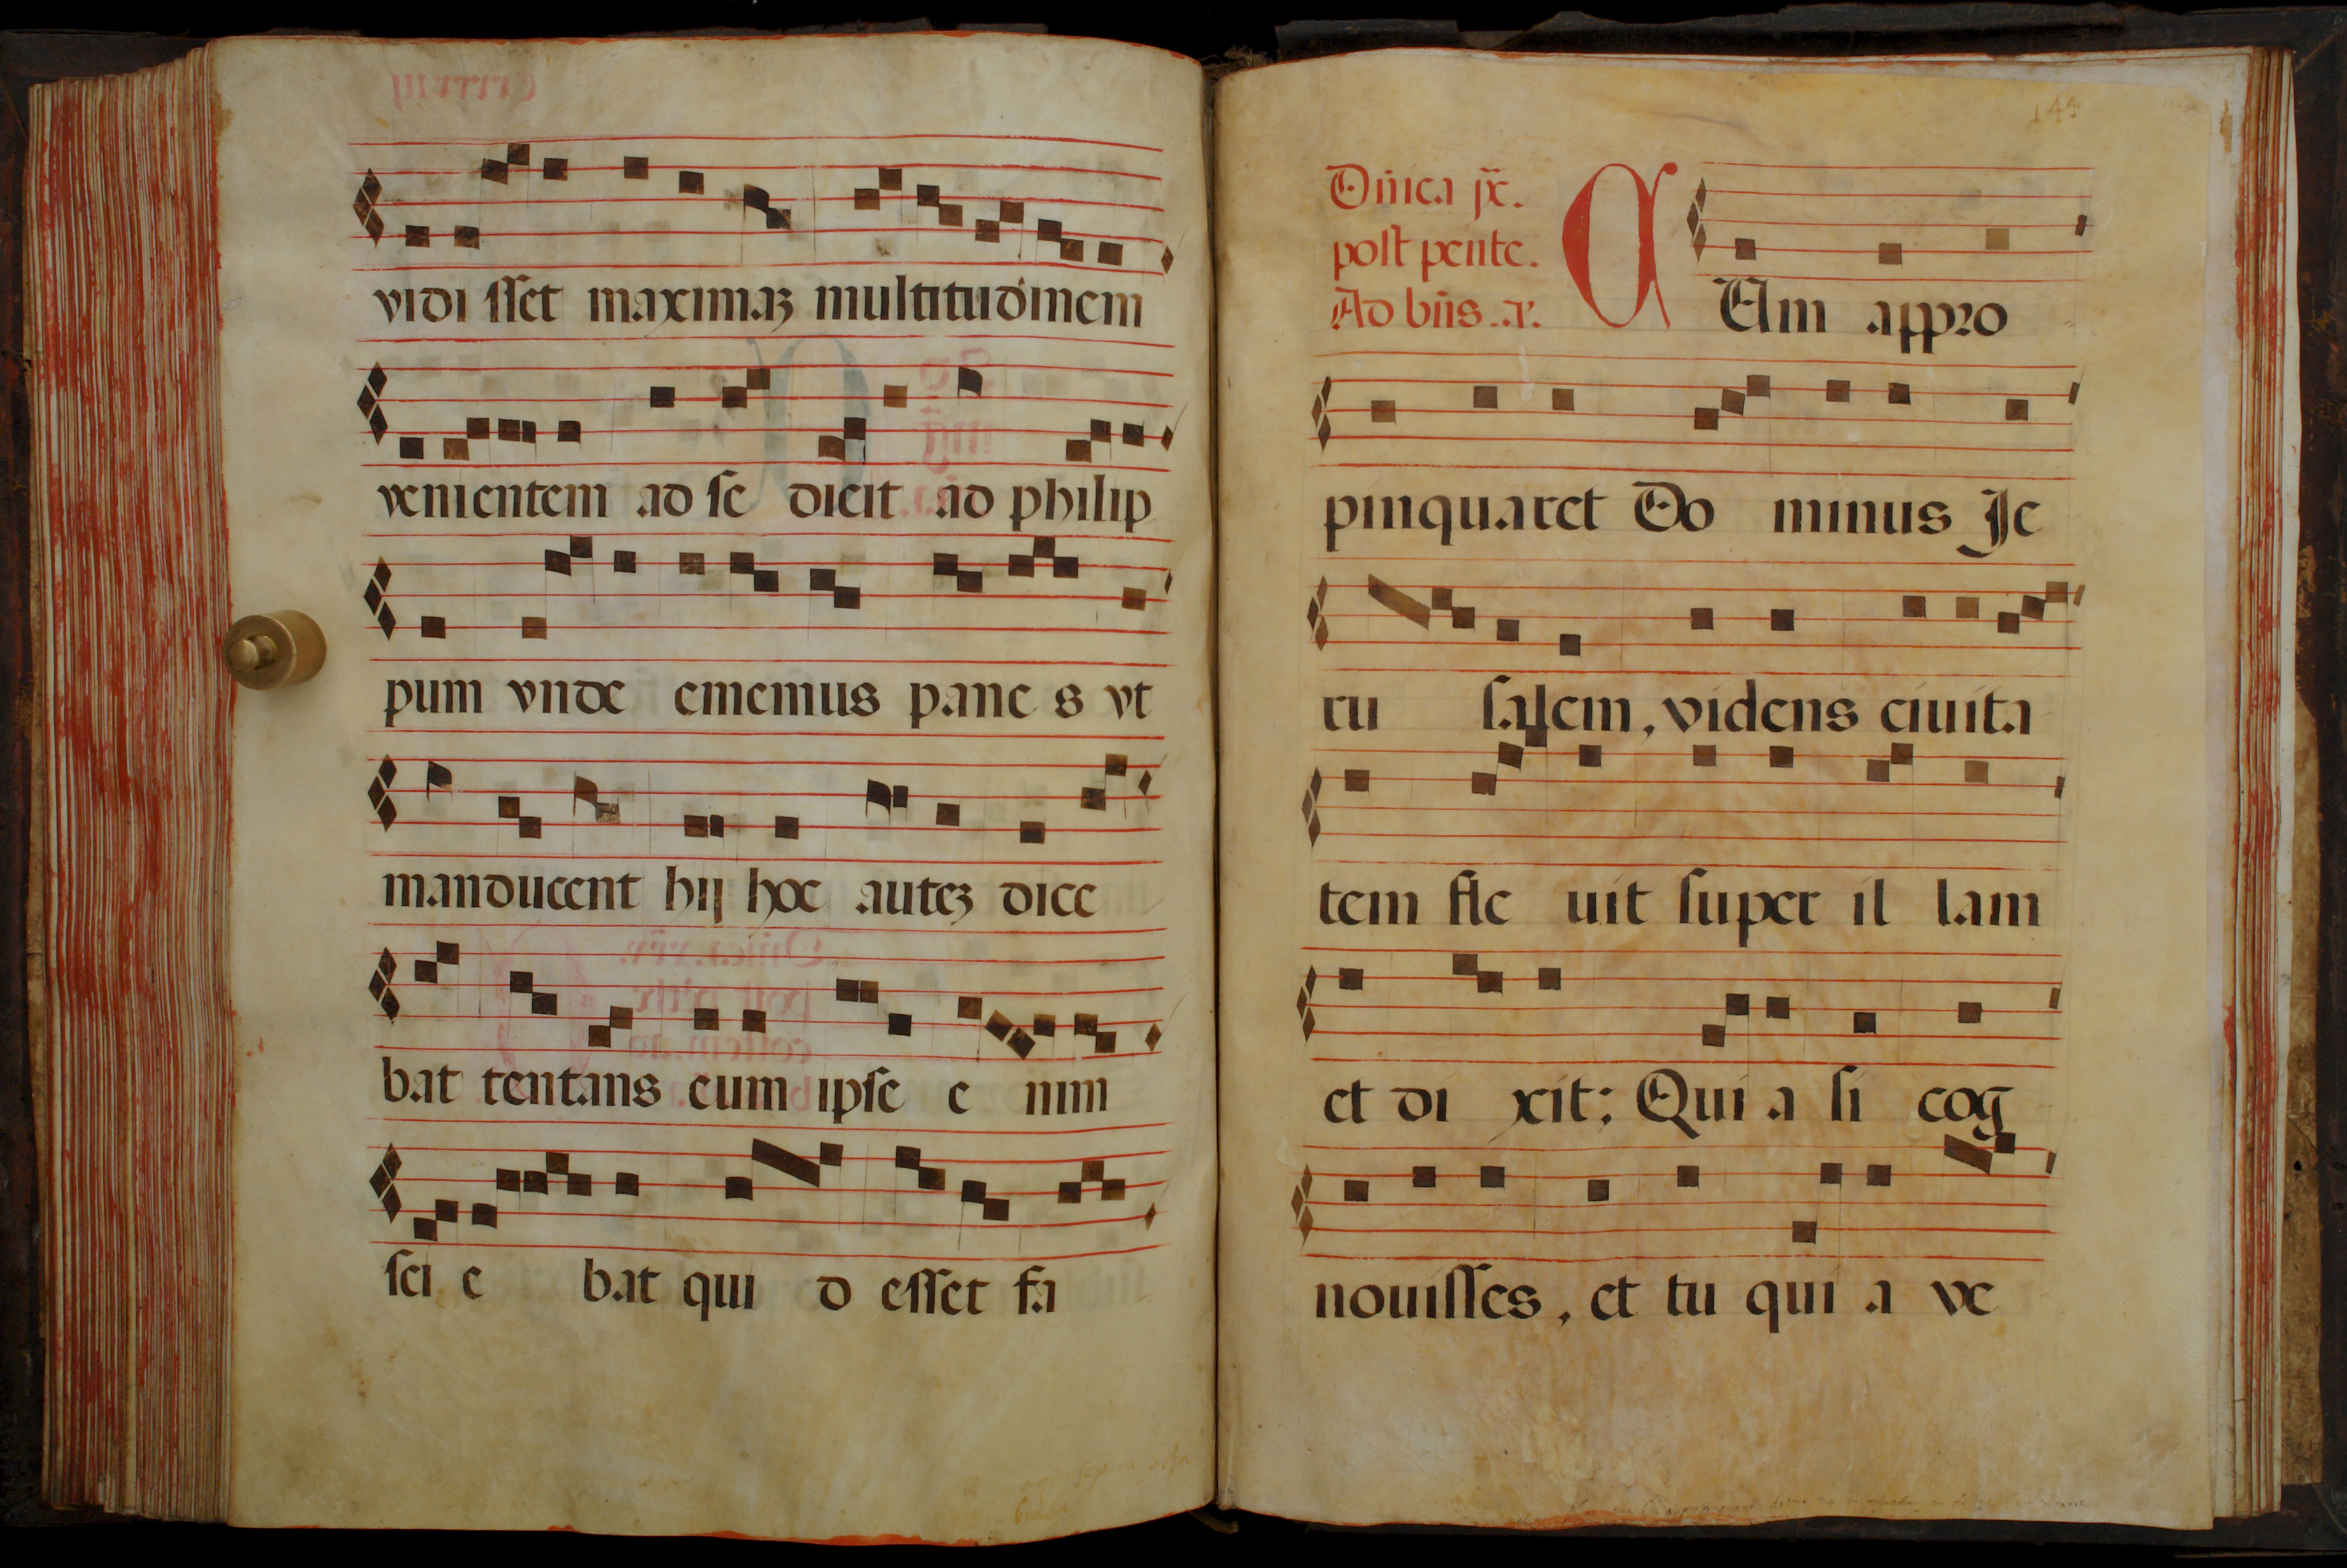 vidi sset maximaʒ multitudinem
venientem ad se dicit ad philip
pum vnde ememus pane s vt
manducent hij hoc auteʒ dice
bat tentans eum ipse e nim
sci e bat qui d esset fa
144
Dñica jx.
post pente.
Ad bñs. a.
C Um appro
pinquaret Do minus Je
ru salem, videns ciuita
tem fle uit super il lam
et di xit: Qui a si cog
nouisses, et tu qui a ve